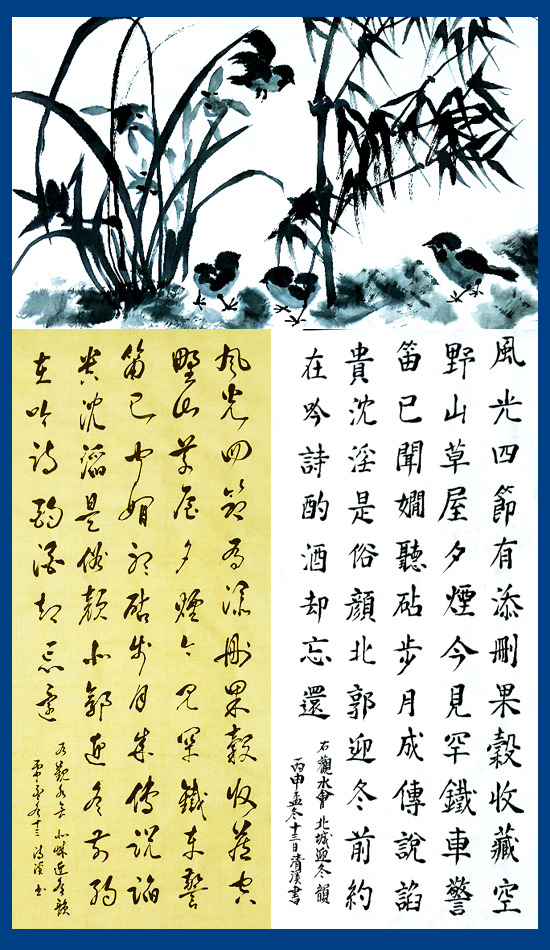 風光四節有添刪果穀收藏空
野山草屋夕煙今見罕鐵車警
笛已聞嫺聽砧步月成傳說諂
貴沈淫是俗顏北郭迎冬前約
在吟詩酌酒却忘還
右觀水會 北城迎冬韻
丙申孟冬十三日清溪書
風光四節有添刪果穀收藏空
野山草屋夕煙今見罕鐵車警
笛已聞嫺聽砧步月成傳說諂
貴沈淫是俗顏北郭迎冬前約
在吟詩酌酒却忘還
右觀水會 北城迎冬韻
丙申孟冬十三 清溪書